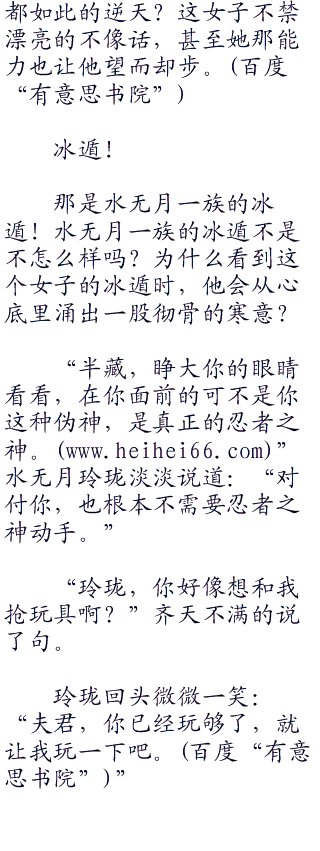 都如此的逆天？这女子不禁
漂亮的不像话，甚至她那能
力也让他望而却步。(百度
“有意思书院”)
冰遁！
那是水无月一族的冰
遁！水无月一族的冰遁不是
不怎么样吗？为什么看到这
个女子的冰遁时，他会从心
底里涌出一股彻骨的寒意？
“半藏，睁大你的眼睛
看看，在你面前的可不是你
这种伪神，是真正的忍者之
神。(www.heihei66.com)”
水无月玲珑淡淡说道：“对
付你，也根本不需要忍者之
神动手。”
“玲珑，你好像想和我
抢玩具啊？”齐天不满的说
了句。
玲珑回头微微一笑：
“夫君，你已经玩够了，就
让我玩一下吧。(百度“有意
思书院”)”